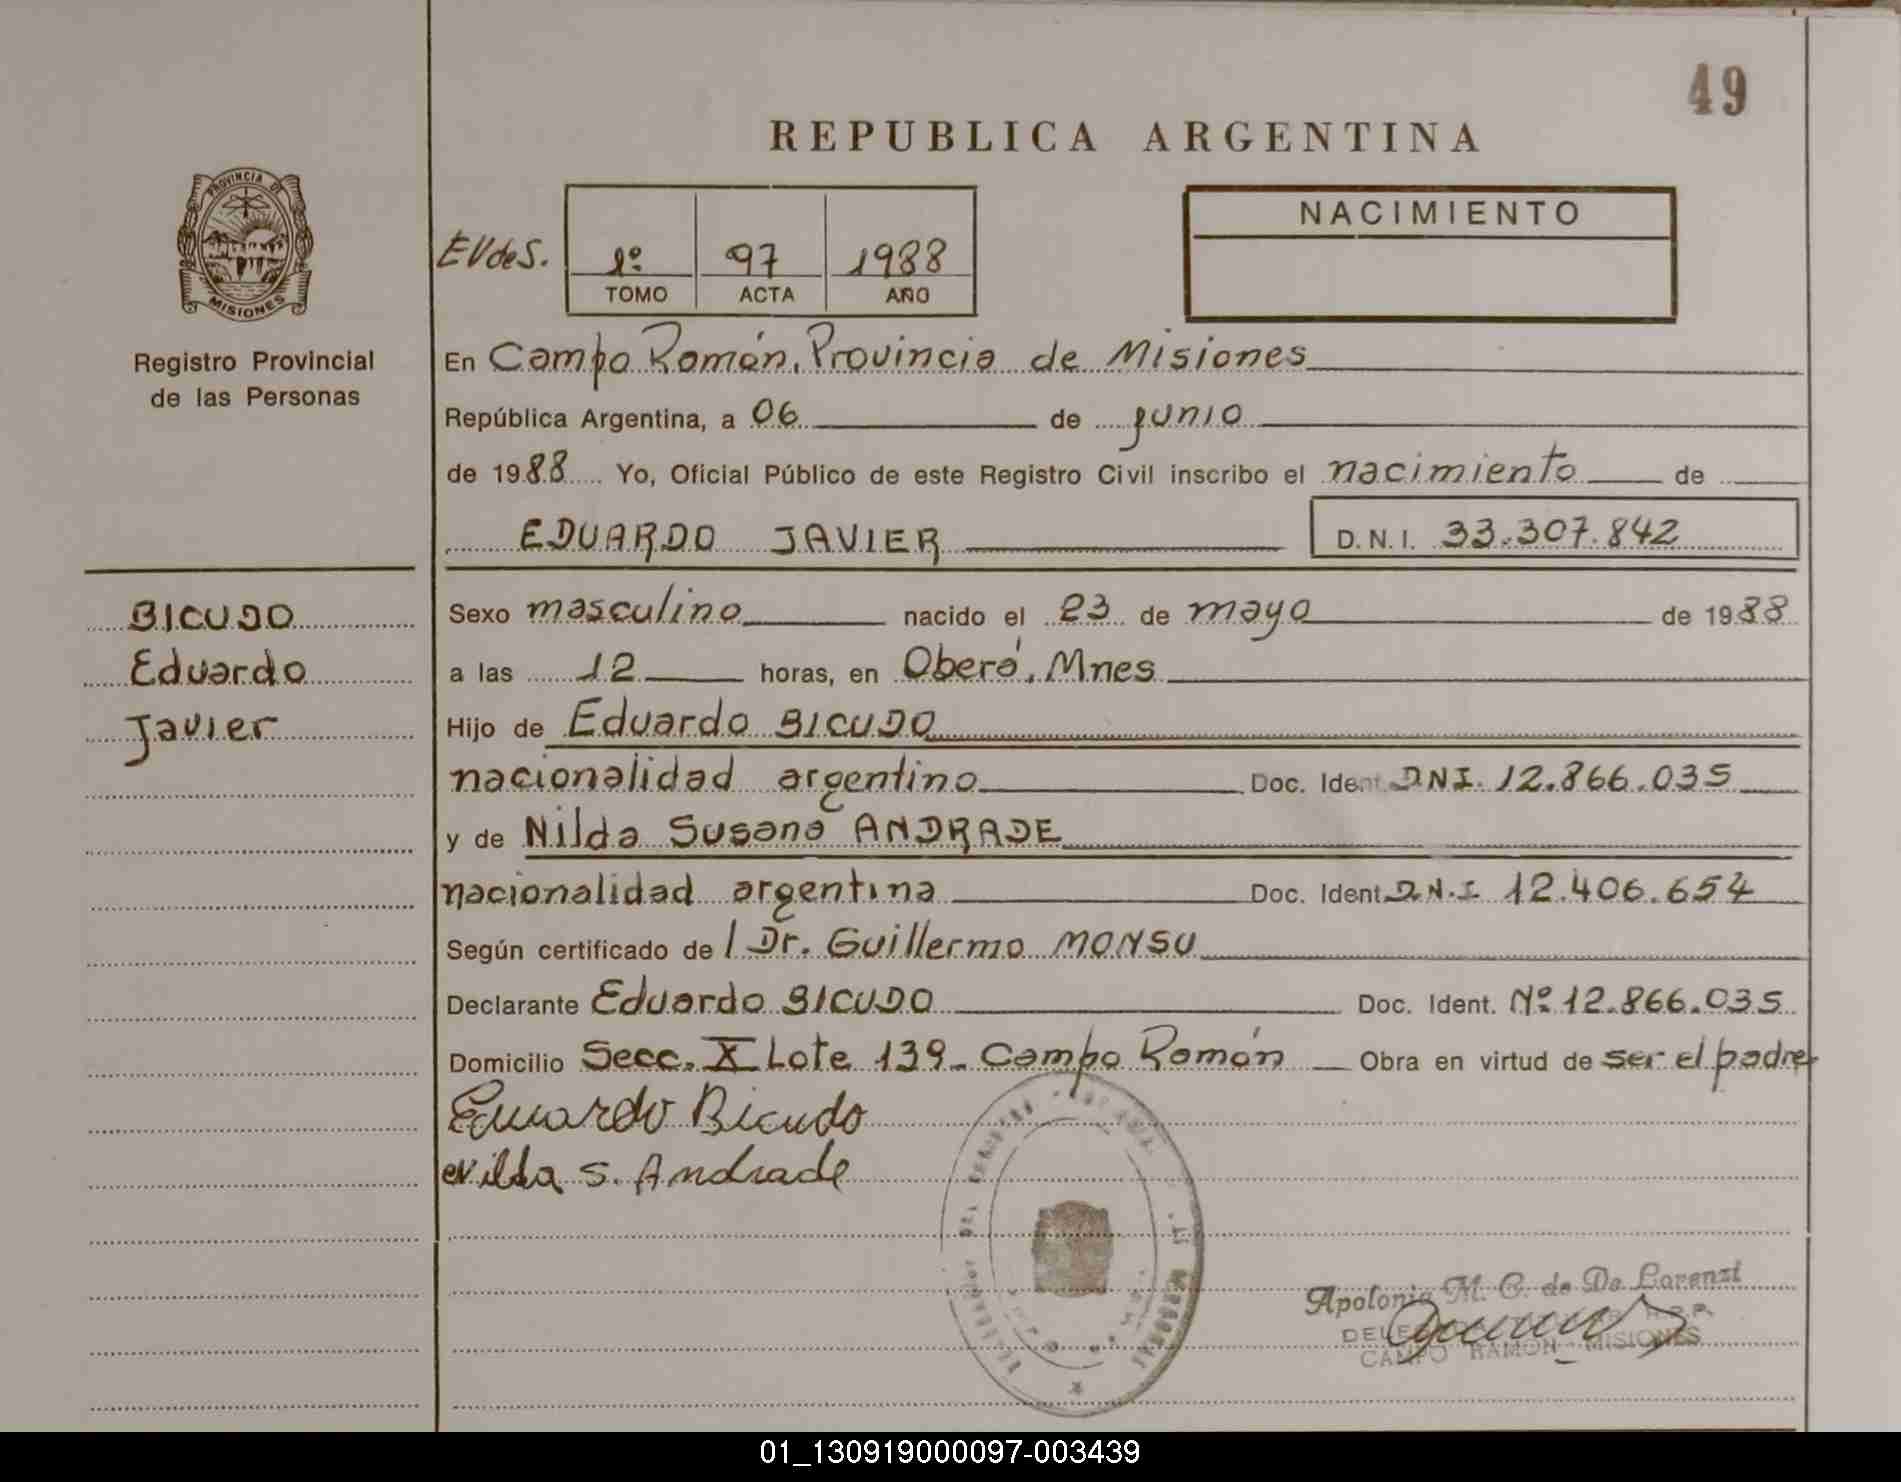 49
REPUBLICA ARGENTINA
PROVINCIA DE
MISIONES
Registro Provincial
de las Personas
EVdeS.
1º 97 1988
TOMO ACTA AÑO
NACIMIENTO
En Campo Ramón, Provincia de Misiones
República Argentina, a 06 de junio
de 1988 Yo, Oficial Público de este Registro Civil inscribo el nacimiento de
EDUARDO JAVIER D.N.I. 33.307.842
BICUDO
Eduardo
Javier
Sexo masculino nacido el 23 de mayo de 1988
a las 12 horas, en Oberá, Mnes
Hijo de Eduardo BICUDO
nacionalidad argentino Doc. Ident. DNI. 12.866.035
y de Nilda Susana ANDRADE
nacionalidad argentina Doc. Ident. D.N.I 12.406.654
Según certificado de / Dr. Guillermo MONSU
Declarante Eduardo BICUDO Doc. Ident. Nº 12.866.035
Domicilio Secc. X Lote 139- Campo Ramón Obra en virtud de ser el padre
Eduardo Bicudo
Nilda S. Andrade
Apolonia M. C. de De Lorenzi
CAMPO RAMON - MISIONES
01_130919000097-003439